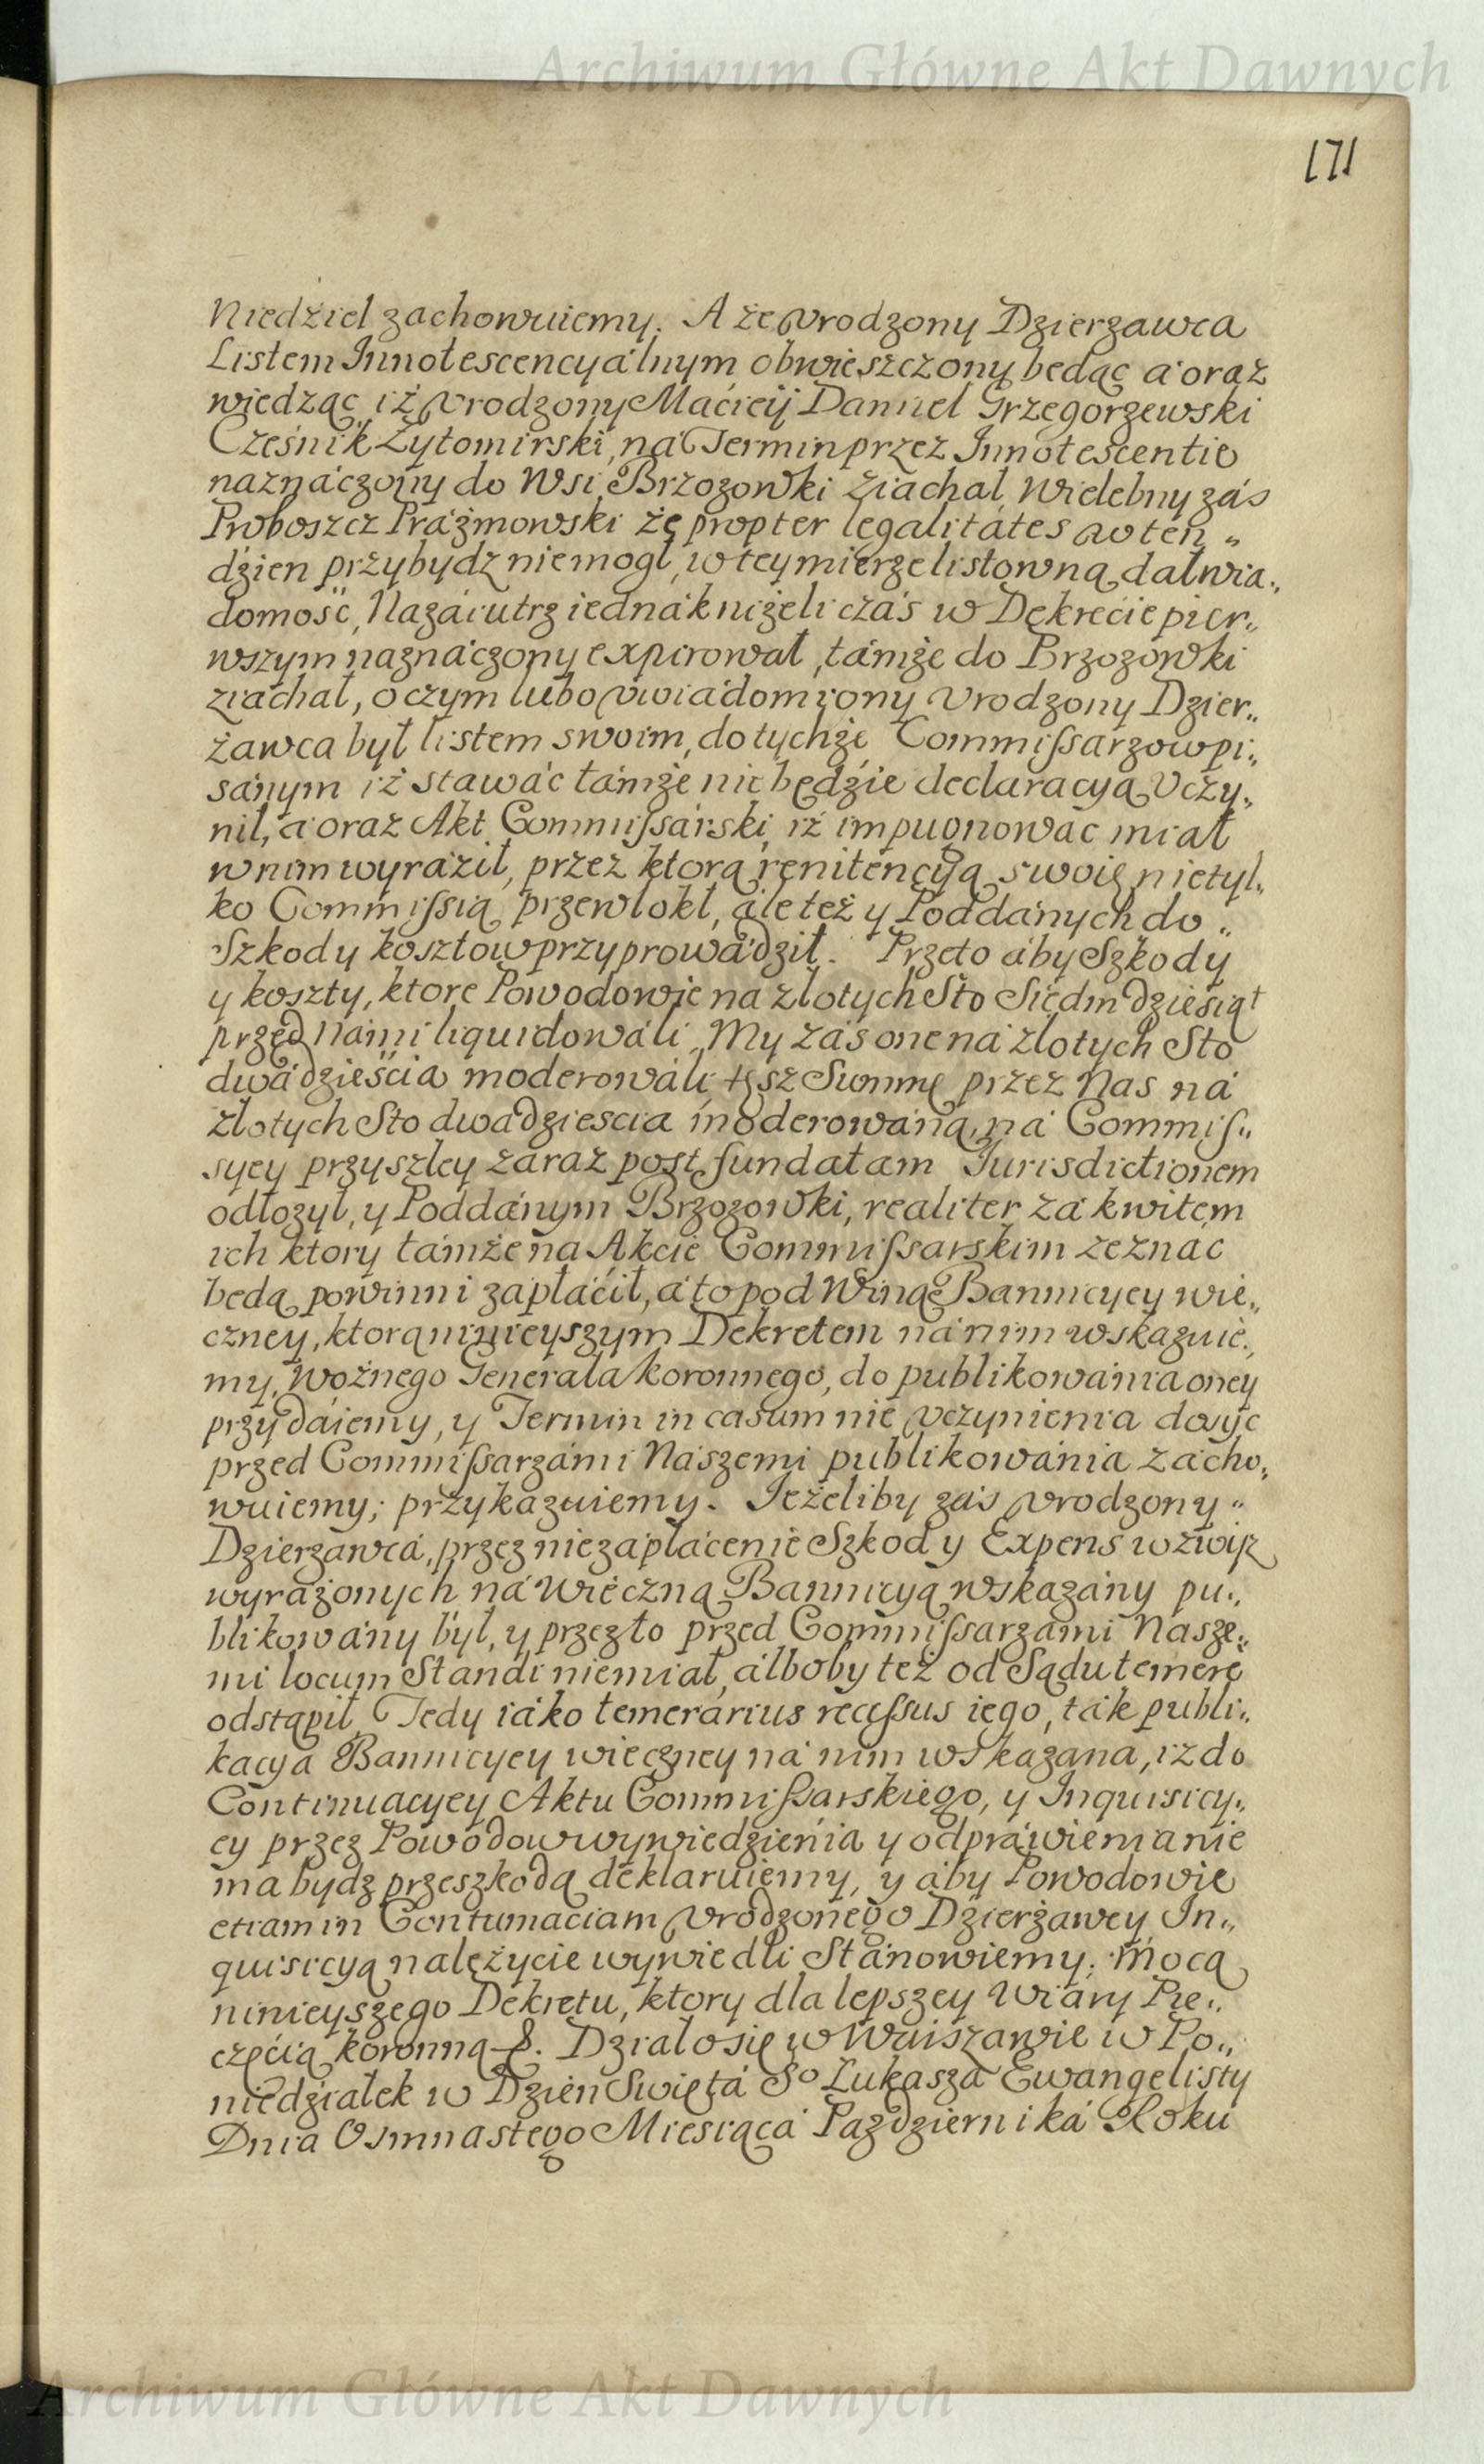 Archiwum Główne Akt Dawnych
171
Niedźiel zachowuiemy. A że vrodzony Dzierzawca
Listem Innotescencyálnym obwieszczony bedąc á oraz
wiedząc iż vrodzony Maćieij Daniel Grzegorzewski
Cześnik Żytomirski, ná Termin przez Innotescentie
náznáczony do Wsi Brzozowki ziachał, Wielebny záś
Proboszcz Práżmowski że propter legalitátes w ten „
dźien przybydz niemogł, w tey mierze listowną dał wia„
domość, Názáiutrz iednák niżeli czás w Dekrećie pier„
wszym náznáczony expirował, támże do Brzozowki
ziáchał, o czym lubo vwiádomiony vrodzony Dzier„
żawca był listem swoim, do tychże Commissarzow pi„
sánym iż stawáć támże nie będźie declaracyą vczy„
nił, á oraz Akt Commissárski iż impugnowác miał
w nim wyráził, przez ktorą renitencyą swoię nietyl„
ko Commissią przewlokł, ale też y Poddánych do „
Szkody kosztow przyprowádźił. Przeto áby Szkody
y koszty, ktore Powodowie na złotych Sto Siedmdzieśiąt
przed Námi liquidowáli, My záś one ná złotych Sto
dwádzieśćia moderowáli tęsz Summę przez Nas ná
złotych Sto dwadziescia moderowáną, ná Commis„
syey przyszłey záraz post fundatam Iurisdictionem
odłozył, y Poddánym Brzozowki, realiter zá kwitem
ich ktory támże na Akcie Commissarskim zeznać
bedą powinni zápłáćił, á to pod Winą Bannicyey wie„
czney, ktorą ninieyszym Dekretem ná nim wskazuie„
my, Woźnego Generała koronnego, do publikowánia oney
przydáiemy, y Termin in casum nie vczynienia dosyć
przed Commissarzámi Nászemi publikowánia zácho„
wuiemy; przykazuiemy. Ieżeliby záś vrodzony „
Dzierzawcá, przez niezápłácenie Szkod y Expens wzwisz
wyrażonych ná Wieczną Bannicyą wskazány pu„
blikowány był, y przezto przed Commissarzámi Násze„
mi locum Standi niemiał, álboby też od Sądu temere
odstąpił, Tedy iáko temerárius recessus iego, ták publi„
kacya Bannicyey wieczney ná nim wskazana, iż do
Continuacyey Aktu Commissarskiego, y Inquisicy„
ey przez Powodow wywiedzienia y odpráwienia nie
ma bydz przeszkodą deklaruiemy, y áby Powodowie
etiam in Contumaciam vrodzonego Dzierżawcy In„
quisicyą należycie wywiedli Stánowiemy; mocą
ninieyszego Dekretu, ktory dla lepszey Wiáry Pie„
częćią koronną &. Dziáło się w Warszawie w Po„
niedziałek w Dzien Swiętá So Łukasza Ewangelisty
Dnia Osmnastego Miesiąca Pazdziernika Roku
Archiwum Główne Akt Dawnych